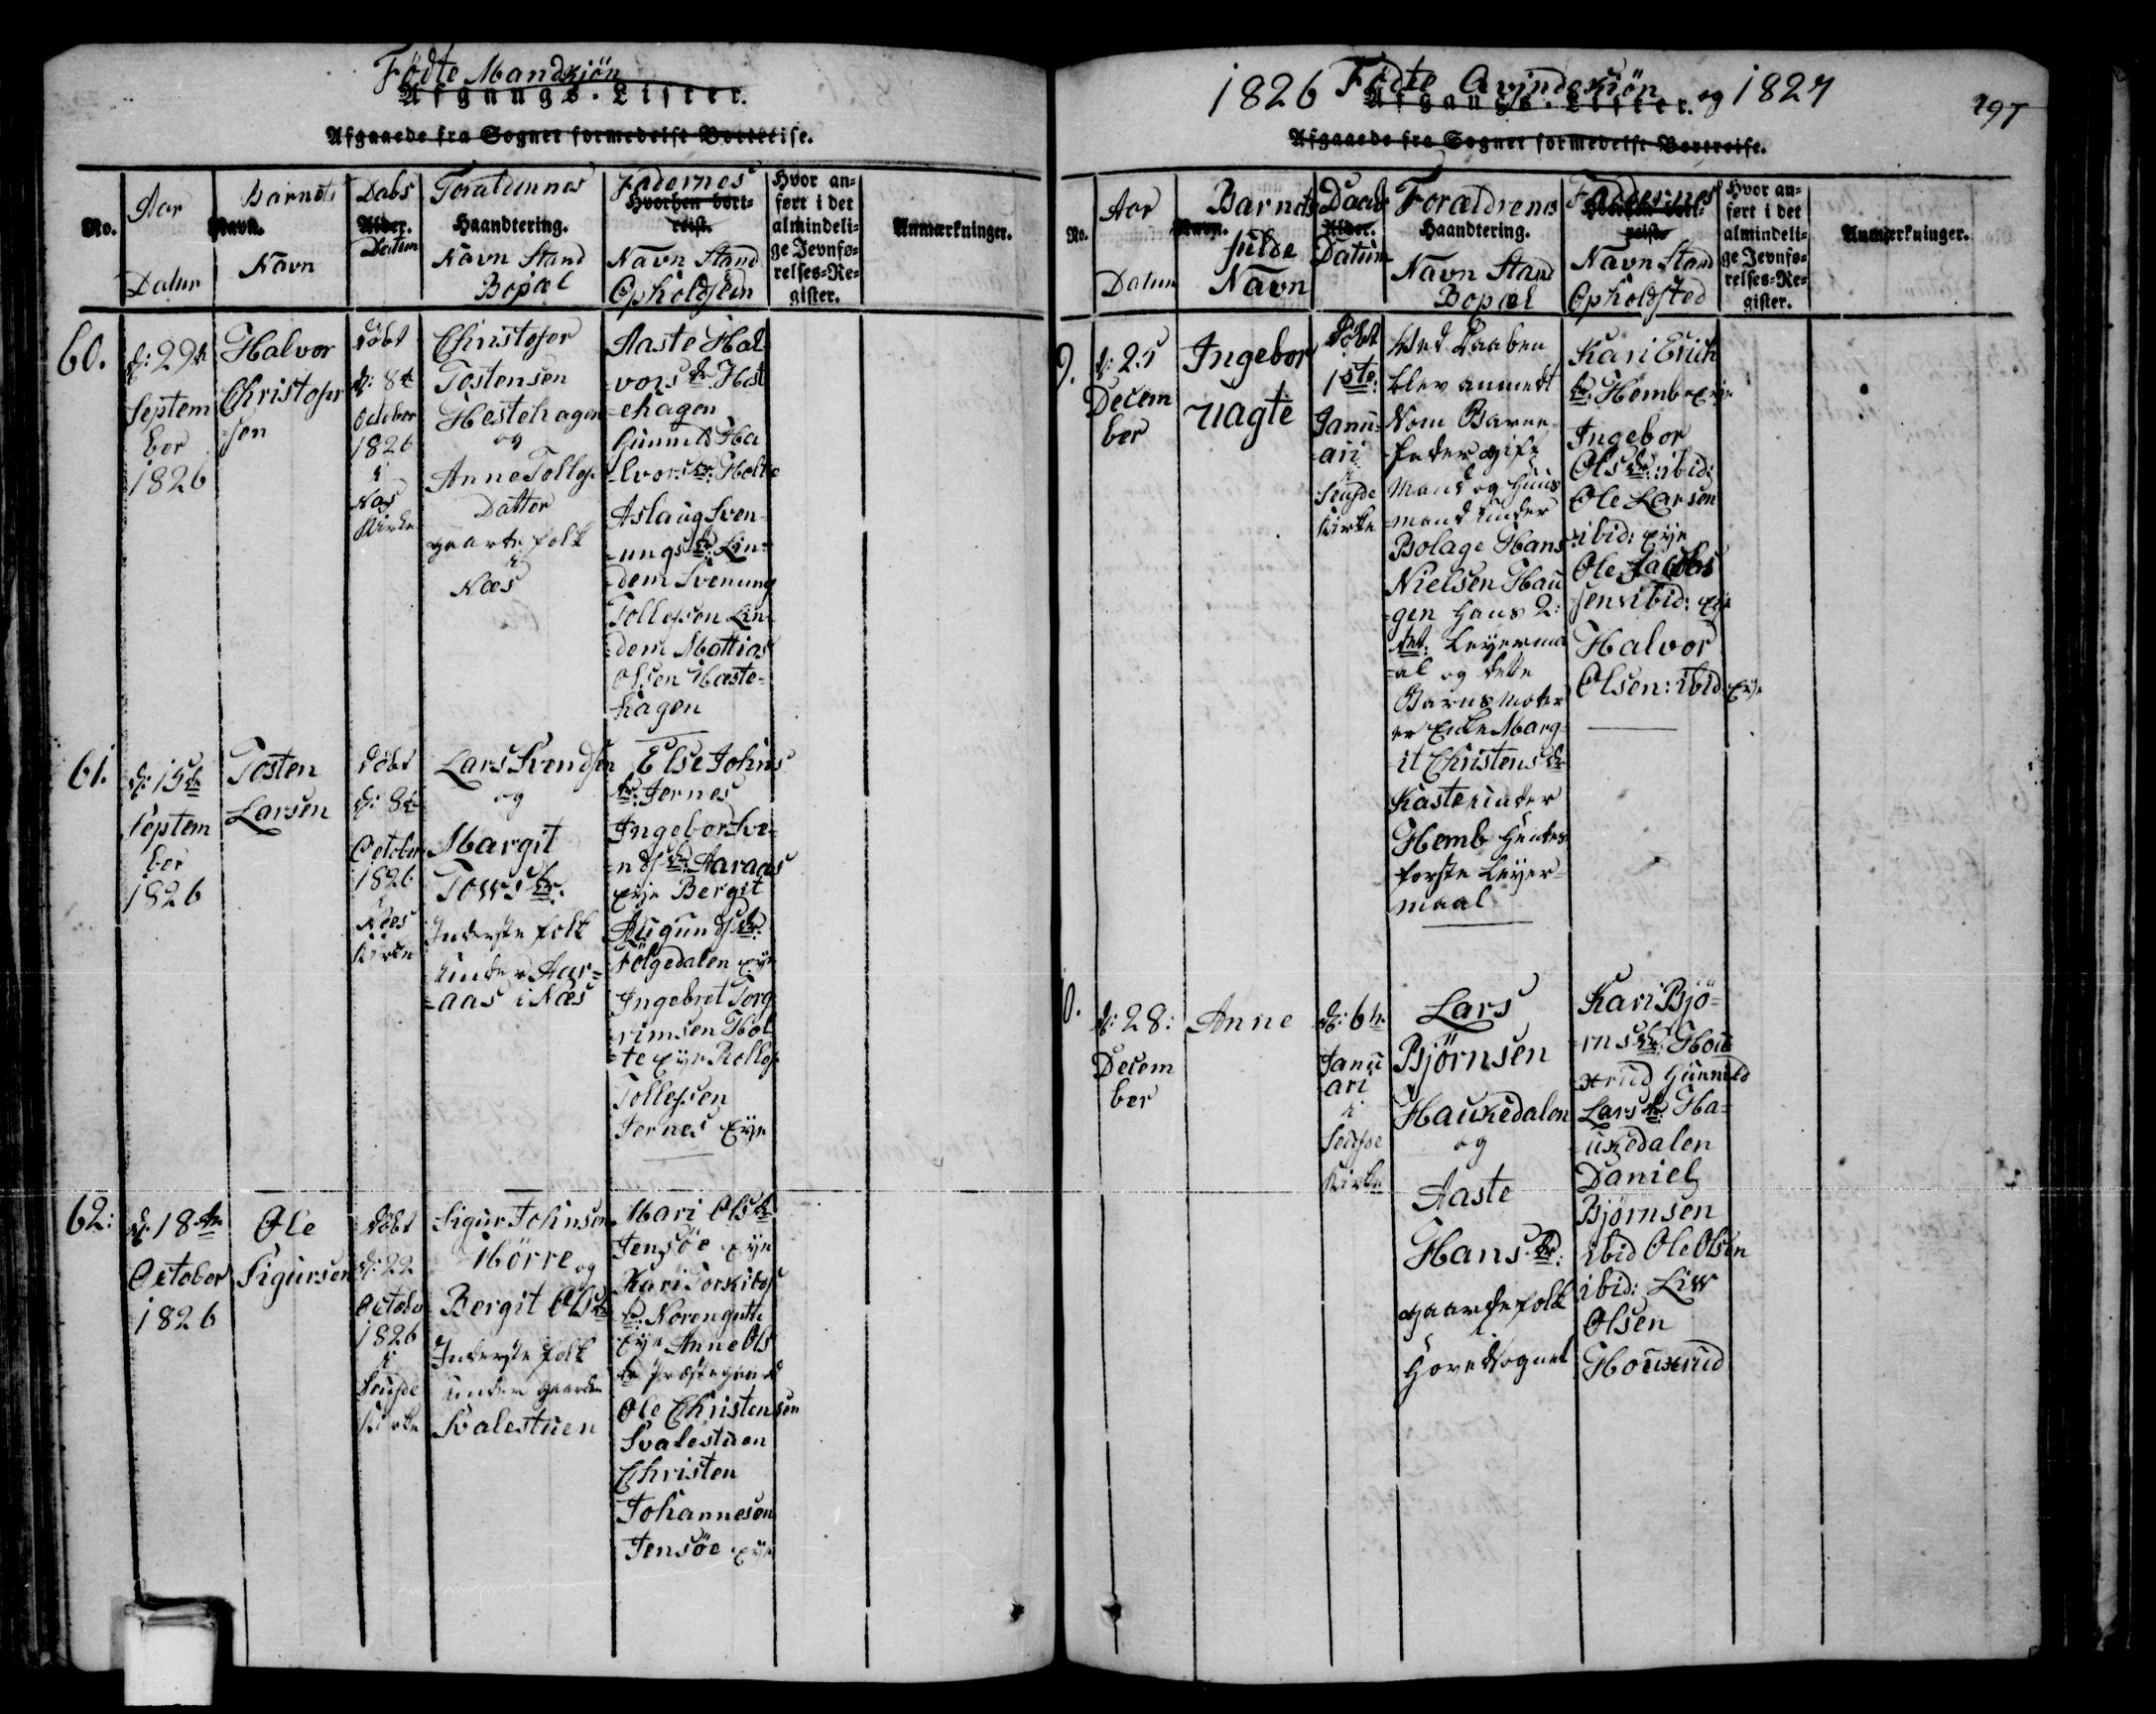 Födte Mandkjön
Afgangs-Lister.
Afgaaede fra Sognet formedelst Bortreise.
No.
Aar
Datum
Barnets
Navn.
Navn
Dabs
Alder.
Datum
Forældrenes
Haandtering.
Navn Stand
Bopæl
Fadernes
Hvorhen bort-
reist.
Navn Stand
Opholdsted
Hvor an-
ført i det
almindeli-
ge Jevnfø-
relses-Re-
gister.
Anmærkninger.
60.
d: 29de
Septem
ber
1826
Halvor
Christofer
sen
döbt
d: 8de
October
1826
i
Næs
Kirke
Christofer
Tostensen
Hestehagen
og
Anne Tollefs
Datter
gaarde folk
i
Næs
Aaste Hal
vors dr. Hest
ehagen
Gunnild Ha
lvors dr. Holte
Aslaug Sven
ungs dr. Lin=
dem Svenung
Tollefsen Lin
dem Mattias
Olsen Hæste=
hagen
61.
d: 15de
Septem
ber
1826
Tosten
Larsen
döbt
d: 8de
October
1826
i
Næs
Kirke
Lars Svendsen
og
Margit
Tows dr.
Inderste folk
under Aar=
aas i Næs
Else Johns
dr. Jernes
Ingebor Sve=
nds dr. Aaraas
eye Bergit
Augunds dr.
Fölgedalen eye
Ingebret Torg
rimsen Hol
te eye Rollef
Tollefsen
Jernes Eye
62:
d. 18de
October
1826
Ole
Sigursen
döbt
d: 22
October
1826
i
Souhde
Kirke
Sigur Johnsen
Mörre og
Bergit Ols dr
Inderste folk
under gaarden
Svalestuen
Mari Ols dr
Jensöe eye
Kari Torkilds
dr. Norengutte
eye Anne Ols
dr Præstegaard
Ole Christensen
Svalestuen
Christen
Johannesen
Jensöe eye
1826 Födte Qvindekiön og 1827
297
Afgangs-Lister.
Afgaaede fra Sognet formedelst Bortreise.
No.
Aar
Datum
Barnets
Navn.
fulde
Navn
Daabs
Alder.
Datum
Forældrenes
Haandtering.
Navn Stand
Bopæl
Faddernes
Hvorhen bort-
reist.
Navn Stand
Opholdsted
Hvor an-
ført i det
almindeli-
ge Jevnfø-
relses-Re-
gister.
Anmærkninger.
9.
d: 25
Decem
ber
Ingebor
uägte
Döbt
1ste:
Janu=
ari
i
Souhde
Kirke
Ved Daaben
blev anmeldt
som Barne
fader gift
Mand og Huus
mand under
Bolage Hans
Nielsen Hau
gen hans 2:
det: Leyerma
al og dette
Barns Moder
er Enke Marg
it Christens dr
Kasterunder
Hemb hendes
förste Leyer=
maal
Kari Erich
dr. Hemb eye
Ingebor
Ols dr: ibid:
Ole Larsen
ibid: eye
Ole Jacobs
sen ibid: eye
Halvor
Olsen: ibid eye
0.
d: 28:
Decem
ber
Anne
d: 6te
Janu
ari
i
Souhde
Kirke
Lars
Björnsen
Haukedalen
og
Aaste
Hans dr:
gaardefolk
i
Hovedsognet
Kari Bjö=
rns dr. Hou
xrud Gunnild
Lars dr. Ha=
ukedalen
Daniel
Bjørnsen
ibid Ole Olsen
ibid: Liw
Olsen
Houxrud